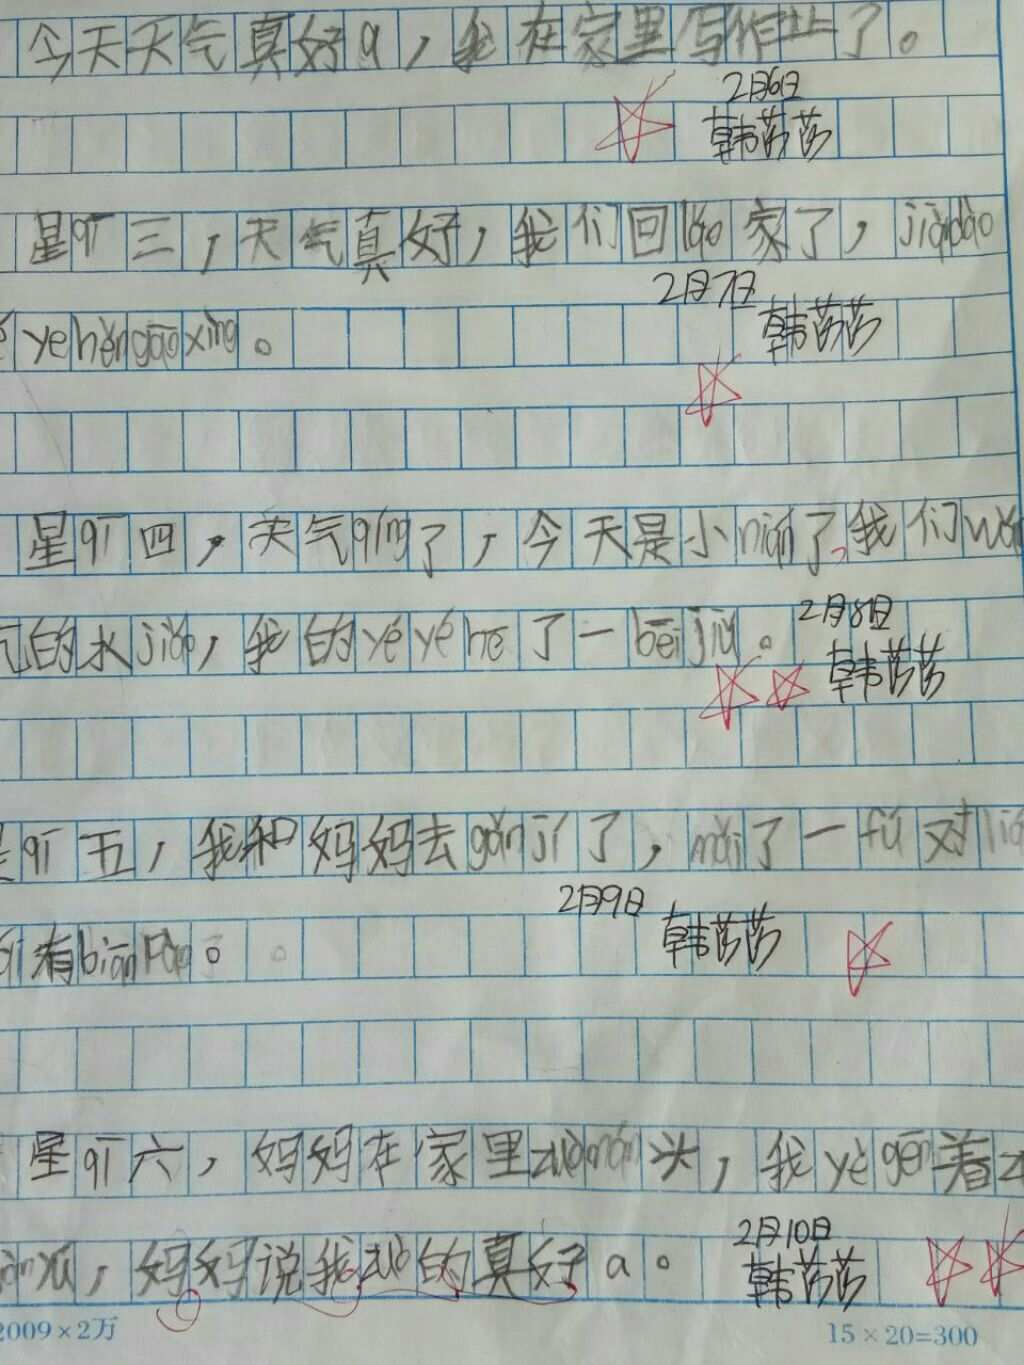 今天天气真好a，我在家里写作业了。
2月6日
韩莎莎
星qī三，天气真好，我们回lǎo家了，jiàndào
yehěngāoxìng。
2月7日
韩莎莎
星qī四，天气qíng了，今天是小nián了，我们
的水jiǎo，我的yéyéhē了一bēijiǔ。
2月8日
韩莎莎
星qī五，我和妈妈去gǎnjí了，mǎi了一fú对
有biānpào。
2月9日
韩莎莎
星qī六，妈妈在家里zuòmán头，我yěgēn着
，妈妈说我zuò的真好a。
2月10日
韩莎莎
2009×2万
15×20=300